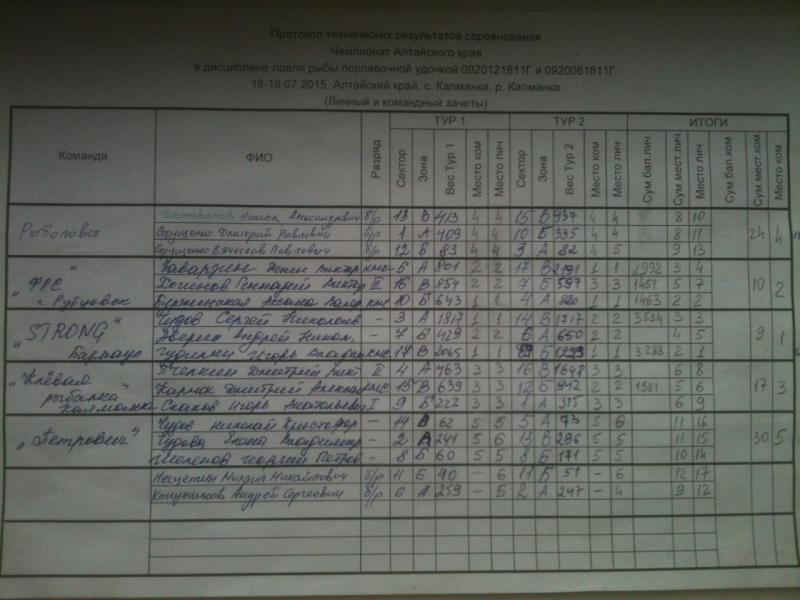 Протокол технических результатов соревнования
Чемпионат Алтайского края
в дисциплине ловля рыбы поплавочной удочкой 0920121811Г и 0920061811Г
18-19.07.2015, Алтайский край, с. Калманка, р. Калманка
(Личный и командный зачеты)
Команда ФИО Разряд ТУР 1 ТУР 2 ИТОГИ
Сектор Зона Вес Тур 1 Место ком Место лич Сектор Зона Вес Тур 2 Место ком Место лич Сум бал.лич Сум мест.лич Место лич Сум бал.ком Сум мест ком Место ком
Рыболовог Александрович б/р 13 В 413 4 4 15 Б 937 4 4 8 10 24 4
Дмитрий Павлович б/р 1 А 409 4 4 10 Б 335 4 4 8 11
Вячеслав Павлович б/р 12 Б 83 4 4 3 А 82 4 5 9 13
„ФРС" Денис Виктор кмс 5 А 2 2 17 В 2191 1 1 2992 3 4 10 2
г. Рубцовск Геннадий Виктор II 16 В 854 2 2 7 Б 597 3 3 1451 5 7
Оксана Валер кмс 10 Б 643 1 1 4 А 1 1 1463 2 2
„STRONG" Чудов Сергей Николаев – 3 А 1817 1 1 14 В 1717 2 2 3534 3 3 9 1
Барнаул Аверин Андрей Никол. – 7 Б 429 2 2 6 А 650 2 2 4 5
Игорь кмс 17 В 2045 1 1 Б 1 1 2 1
„Клёвая Дмитрий Викт II 4 А 763 3 3 16 В 1648 3 3 6 8 17 3
рыбалка" Дмитрий Алексан кмс 15 В 639 3 3 12 Б 942 2 2 1581 5 6
Калманка Скаков Игорь Анатольевич I 9 Б 222 3 3 1 А 315 3 3 6 9
„Петрович" Чудов Николай Христофор – 14 В 62 5 5 5 А 73 5 6 11 16 30 5
Чудова Владимир – 2 А 241 5 6 13 В 296 5 5 11 15
Георгий Петров – 8 Б 60 5 5 8 Б 171 5 5 10 14
Михаил Михайлович б/р 11 Б 40 – 6 11 Б 51 – 6 12 17
Андрей Сергеевич б/р 6 А 259 – 5 2 А 247 – 4 9 12